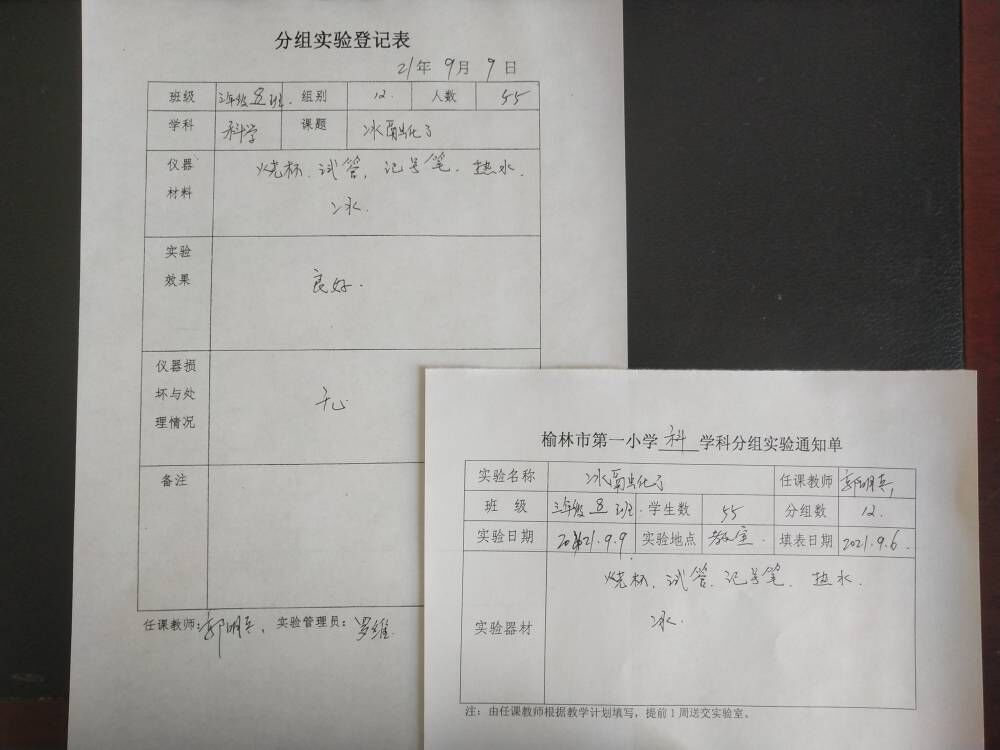 分组实验登记表
21年 9月 9日
班级 三年级 8 班. 组别 12. 人数 55
学科 科学 课题 冰融化了
仪器材料 烧杯、试管、记号笔、热水、
冰.
实验效果 良好.
仪器损坏与处理情况 无
备注
任课教师: 实验管理员: 罗维.
榆林市第一小学 科 学科分组实验通知单
实验名称 冰融化了 任课教师
班 级 三年级 8 班. 学生数 55 分组数 12.
实验日期 2021.9.9 实验地点 教室. 填表日期 2021.9.6.
实验器材 烧杯、试管、记号笔、热水、
冰.
注:由任课教师根据教学计划填写,提前1周送交实验室。